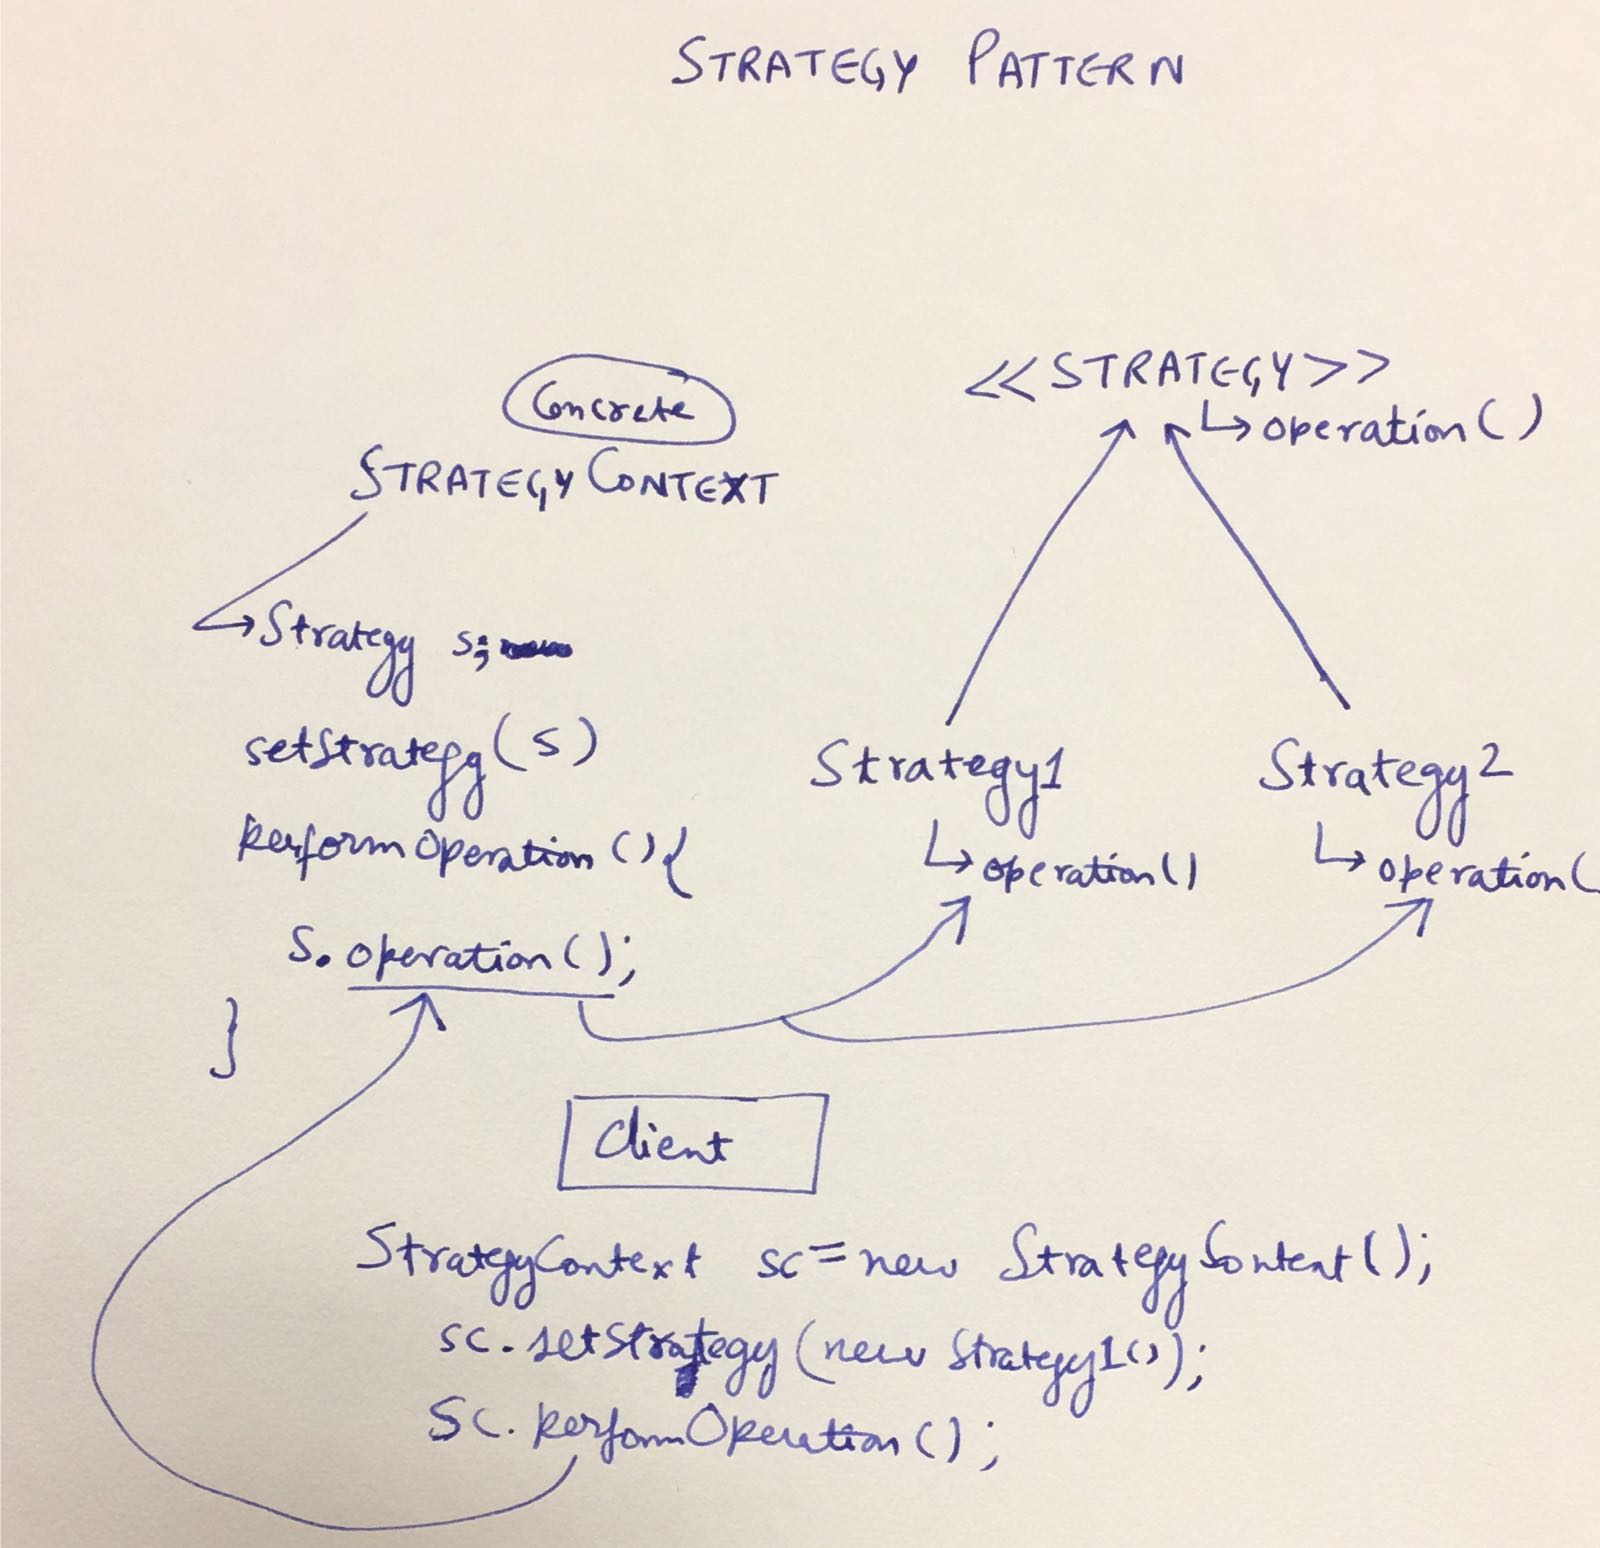 STRATEGY PATTERN
Concrete
STRATEGYCONTEXT
Strategy s;
setStrategy(S)
performOperation(){
S.operation();
}
<<STRATEGY>>
operation()
Strategy1
operation()
Strategy2
operation(
Client
StrategyContext sc=new StrategyContent();
sc.setStrategy(new Strategy1());
SC.performOperation();